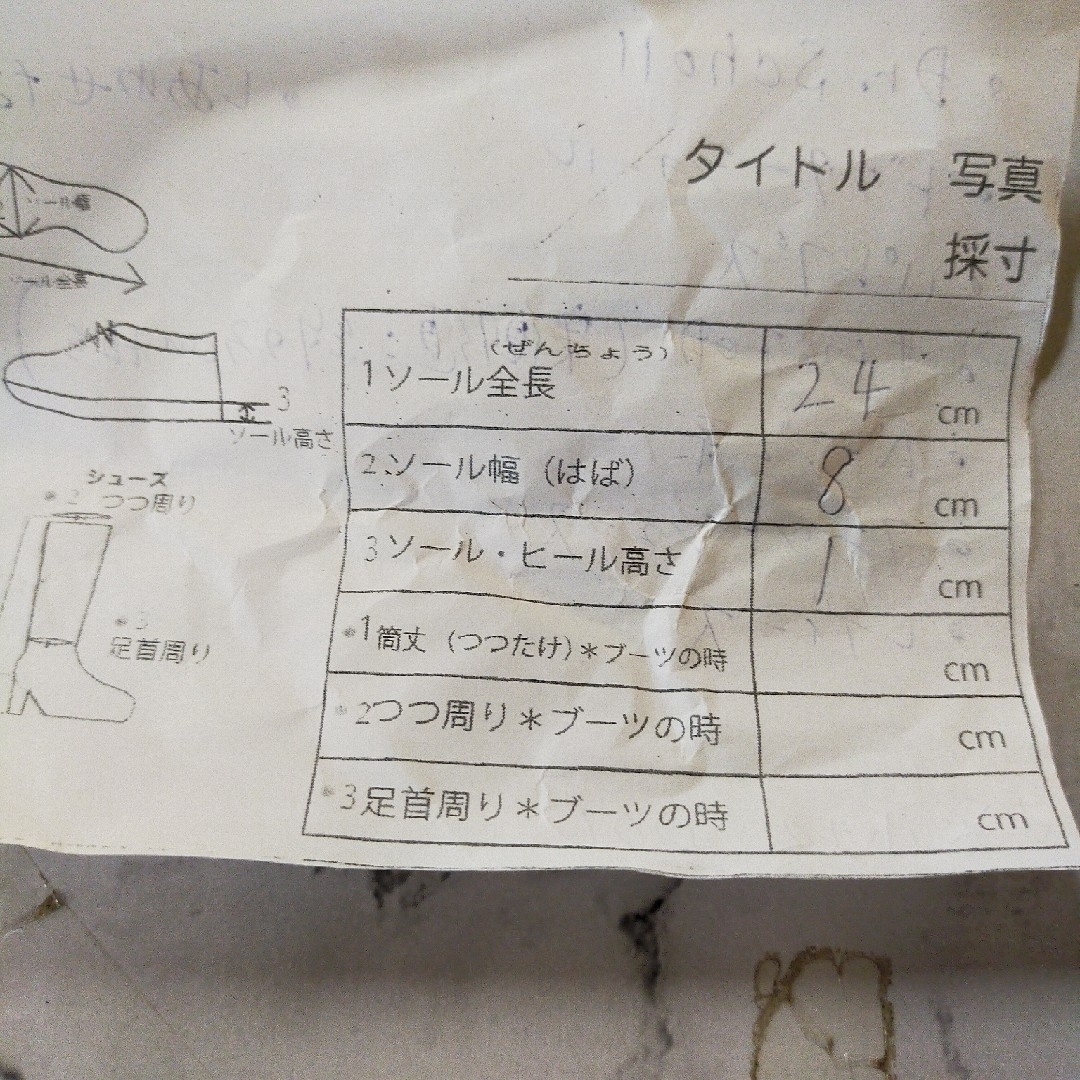 タイトル 写真
採寸
ソール幅
ソール全長
3
ソール高さ
シューズ
2 つつ周り
3
足首周り
(ぜんちょう)
1ソール全長 24 cm
2.ソール幅 (はば) 8 cm
3ソール・ヒール高さ 1 cm
1筒丈 (つつたけ)*ブーツの時 cm
2つつ周り*ブーツの時 cm
3足首周り*ブーツの時 cm